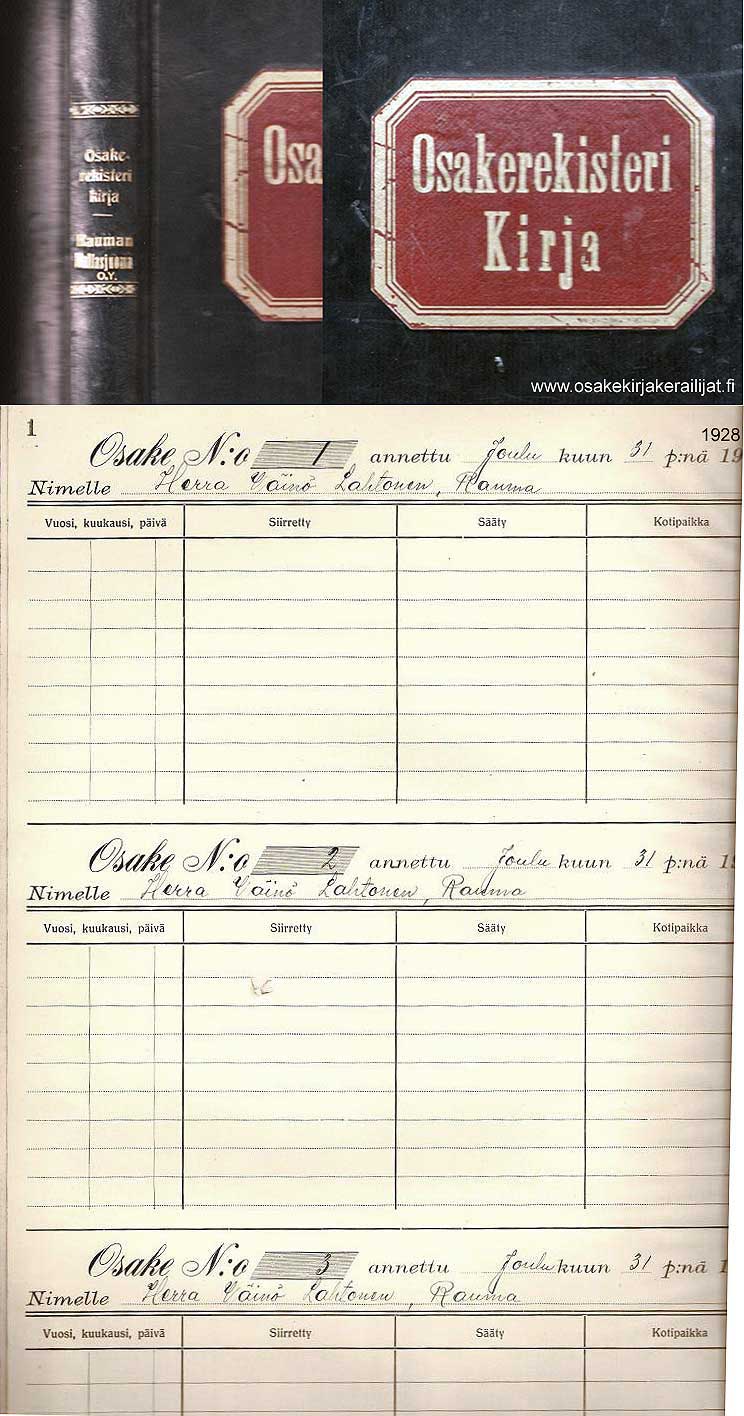 Osake-
rekisteri
kirja
Rauman
O.Y.
Osa
Osakerekisteri
Kirja
www.osakekirjakerailijat.fi
1
1928
Osake N:o 1 annettu Joulu kuun 31 p:nä 19
Nimelle Herra Väinö Lahtonen, Rauma
Vuosi, kuukausi, päivä Siirretty Sääty Kotipaikka
Osake N:o 2 annettu Joulu kuun 31 p:nä 1
Nimelle Herra Väinö Lahtonen, Rauma
Vuosi, kuukausi, päivä Siirretty Sääty Kotipaikka
Osake N:o 3 annettu Joulu kuun 31 p:nä 1
Nimelle Herra Väinö Lahtonen, Rauma
Vuosi, kuukausi, päivä Siirretty Sääty Kotipaikka